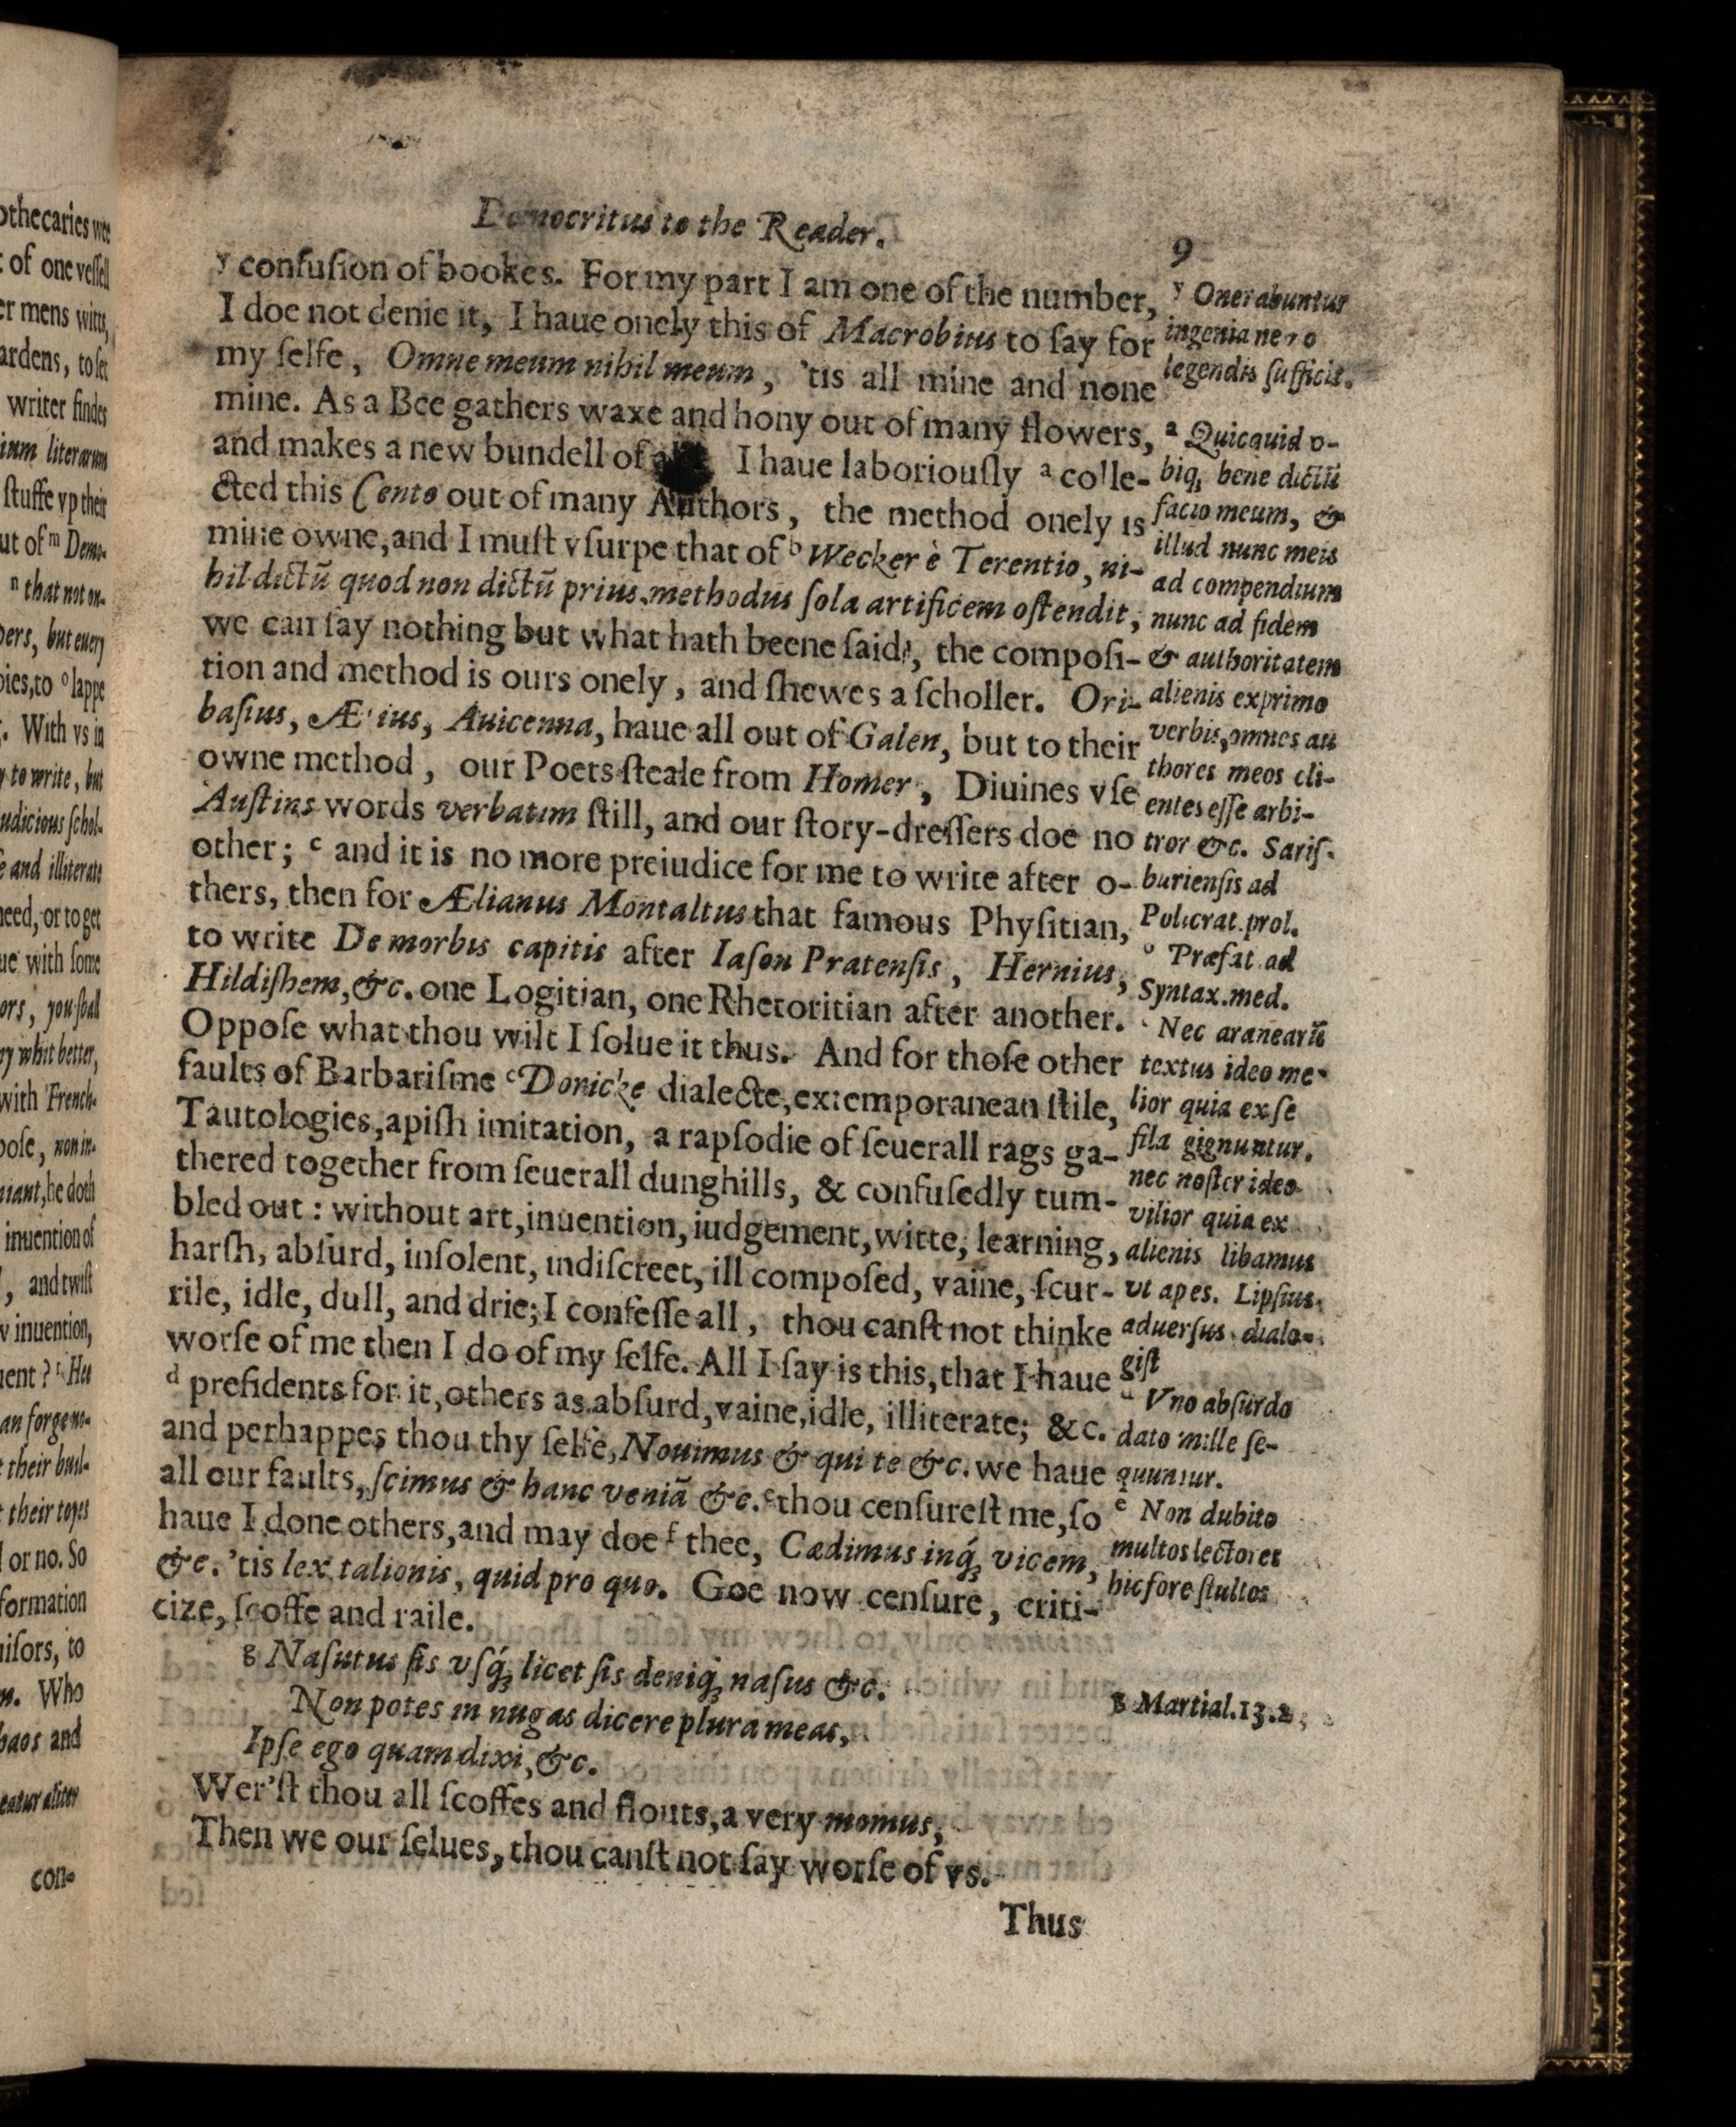 othecaries wee
of one vessell
er mens witts,
ardens, to set
writer findes
ium literarum
stuffe vp their
ut of ᵐ Demo-
ⁿ that not on-
pers, but euery
pies, to ᵒ lappe
With vs in
y to write, but
udicious schol-
e and illiterate
need, or to get
ue with some
ors, you shall
ny whit better,
with French-
pose, non in-
niant, he doth
inuention of
, and twist
v inuention,
ment? ʳ Hee
an forgeno-
their buil-
their toyes
l or no. So
formation
uisors, to
n. Who
haos and
eatur aliter
con-
Democritus to the Reader.
9
ʸ confuſion of bookes. For my part I am one of the number,
I doe not denie it, I haue onely this of Macrobius to ſay for
my ſelfe, Omne meum nihil meum, 'tis all mine and none
mine. As a Bee gathers waxe and hony out of many flowers,
and makes a new bundell of I haue laboriouſly ᵃ colle-
cted this Cento out of many Authors, the method onely is
mine owne, and I muſt vſurpe that of ᵇ Wecker è Terentio, ni-
hil dictū quod non dictū prius, methodus ſola artificem oſtendit,
we can ſay nothing but what hath beene ſaid, the compoſi-
tion and method is ours onely, and ſhewes a ſcholler. Ori-
baſius, Æ ius, Auicenna, haue all out of Galen, but to their
owne method, our Poets ſteale from Homer, Diuines vſe
Auſtins words verbatim ſtill, and our ſtory-dreſſers doe no
other; ᶜ and it is no more preiudice for me to write after o-
thers, then for Ælianus Montaltus that famous Phyſitian,
to write De morbis capitis after Iaſon Pratenſis, Hernius,
Hildiſhem, &c. one Logitian, one Rhetoritian after another.
Oppoſe what thou wilt I ſolue it thus. And for thoſe other
faults of Barbariſme ᶜ Doricke dialecte, extemporanean ſtile,
Tautologies, apiſh imitation, a rapſodie of ſeuerall rags ga-
thered together from ſeuerall dunghills, & confuſedly tum-
bled out: without art, inuention, iudgement, witte, learning,
harſh, abſurd, inſolent, indiſcreet, ill compoſed, vaine, ſcur-
rile, idle, dull, and drie; I confeſſe all, thou canſt not thinke
worſe of me then I do of my ſelfe. All I ſay is this, that I haue
ᵈ preſidents for it, others as abſurd, vaine, idle, illiterate; &c.
and perhappes thou thy ſelfe, Nouimus & qui te &c. we haue
all our faults, ſcimus & hanc veniā &c. ᵉ thou cenſureſt me, ſo
haue I done others, and may doe ᶠ thee, Cædimus inq́ꝫ vicem,
&c. 'tis lex talionis, quid pro quo. Goe now cenſure, criti-
cize, ſcoffe and raile.
ᵍ Naſutus ſis vſq́ꝫ licet ſis deniq́ꝫ naſus &c.
Non potes in nugas dicere plura meas,
Ipſe ego quam dixi, &c.
Wer'ſt thou all ſcoffes and flouts, a very momus,
Then we our ſelues, thou canſt not ſay worſe of vs.
Thus
ʸ Onerabuntur
ingenia nemo
legendis ſufficit.
ᵃ Quicquid v-
biqꝫ bene dictū
facio meum, &
illud nunc meis
ad compendium
nunc ad fidem
& authoritatem
alienis exprimo
verbis, omnes au
thores meos cli-
entes eſſe arbi-
tror &c. Sariſ-
burienſis ad
Policrat. prol.
ᵇ Præfat. ad
Syntax. med.
Nec aranearū
textus ideo me-
lior quia ex ſe
fila gignuntur.
nec noſter ideo
vilior quia ex
alienis libamus
vt apes. Lipſius
aduerſus dialo-
giſt
Vno abſurdo
dato mille ſe-
quuntur.
ᵉ Non dubito
multos lectores
hic fore ſtultos
ᵍ Martial. 13. 2